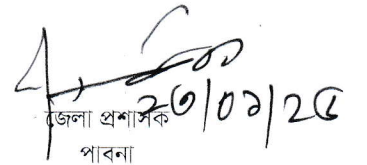 ২৩/০১/২৫
জেলা প্রশাসক
পাবনা